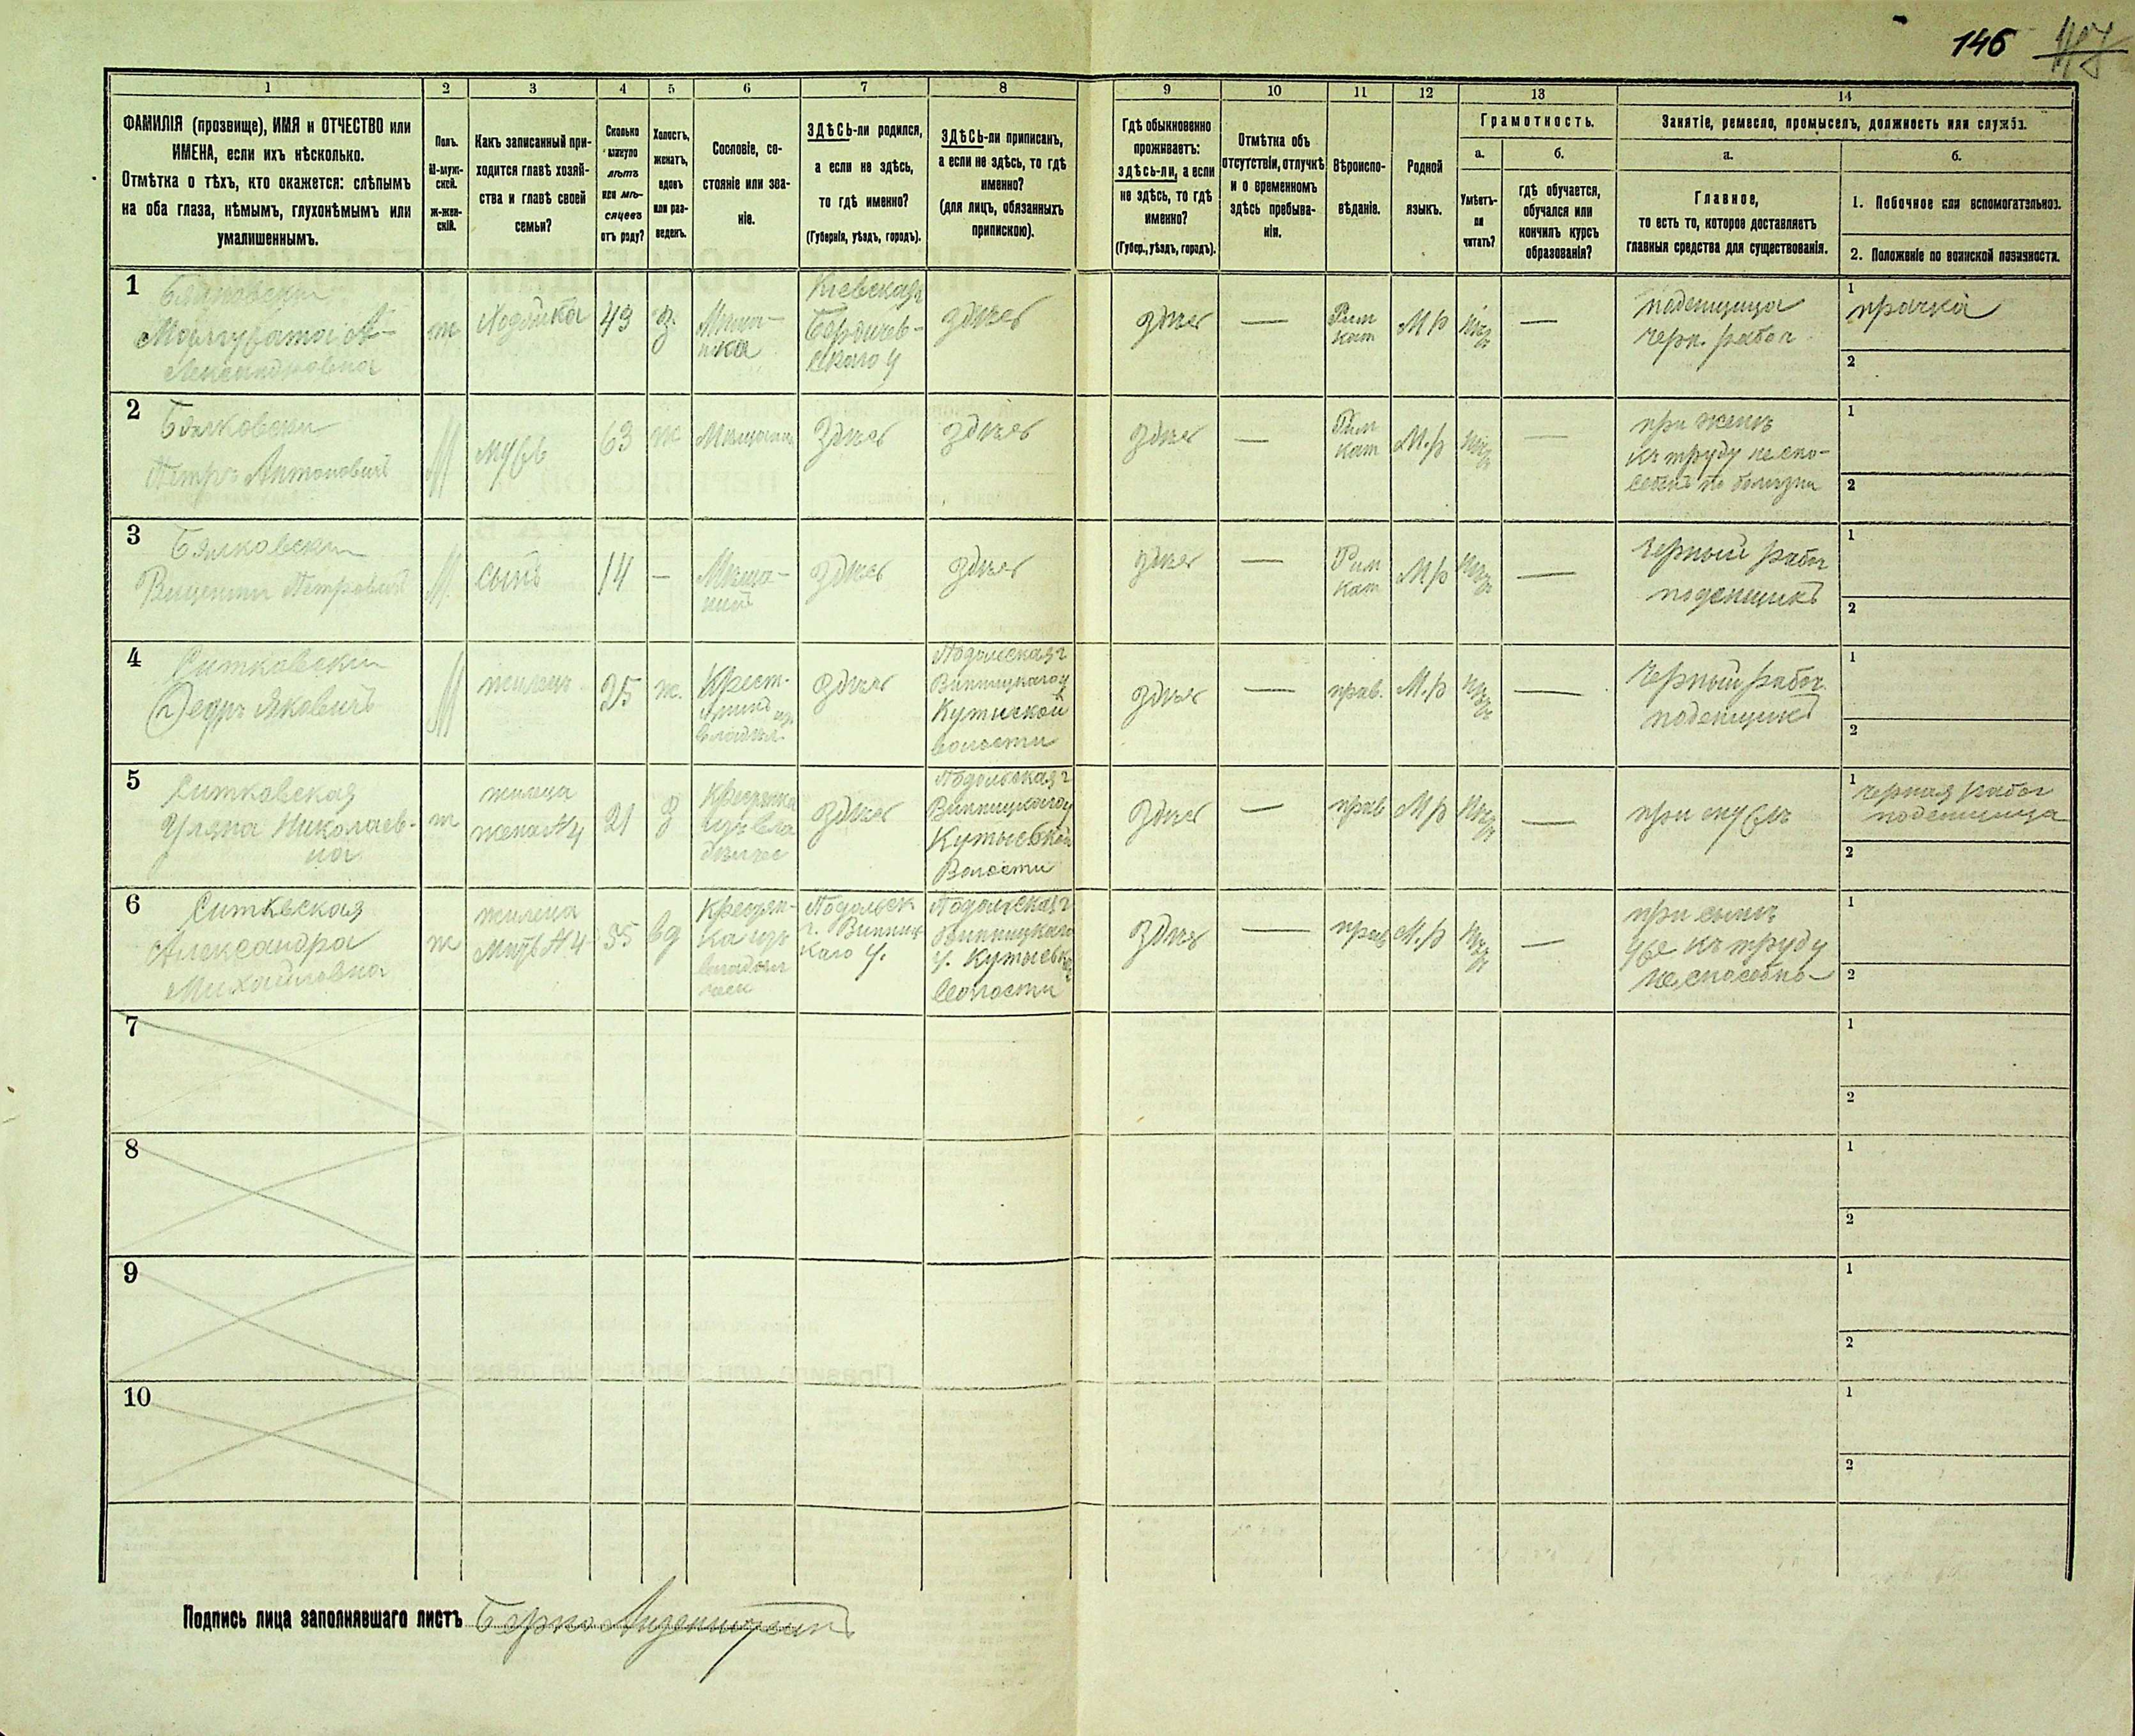 146 147
1 2 3 4 5 6 7 8 9 10 11 12 13 14
ФАМИЛІЯ (прозвище), ИМЯ и ОТЧЕСТВО или
ИМЕНА, если ихъ нѣсколько.
Отмѣтка о тѣхъ, кто окажется: слѣпымъ
на оба глаза, нѣмымъ, глухонѣмымъ или
умалишеннымъ.
Полъ.
М-муж-
ской.
ж-жен-
скій.
Какъ записанный при-
ходится главѣ хозяй-
ства и главѣ своей
семьи?
Сколько
минуло
лѣтъ
или мѣ-
сяцевъ
отъ роду?
Холостъ,
женатъ,
вдовъ
или раз-
веденъ.
Сословіе, со-
стояніе или зва-
ніе.
ЗДѢСЬ-ли родился,
а если не здѣсь,
то гдѣ именно?
(Губернія, уѣздъ, городъ).
ЗДѢСЬ-ли приписанъ,
а если не здѣсь, то гдѣ
именно?
(для лицъ, обязанныхъ
припискою).
Гдѣ обыкновенно
проживаетъ:
здѣсь-ли, а если
не здѣсь, то гдѣ
именно?
(Губер., уѣздъ, городъ).
Отмѣтка объ
отсутствіи, отлучкѣ
и о временномъ
здѣсь пребыва-
ніи.
Вѣроиспо-
вѣданіе.
Родной
языкъ.
Грамотность.
а.
Умѣетъ-
ли
читать?
б.
гдѣ обучается,
обучался или
кончилъ курсъ
образованія?
Занятіе, ремесло, промыселъ, должность или служба.
а.
Главное,
то есть то, которое доставляетъ
главныя средства для существованія.
б.
1. Побочное или вспомогательное.
2. Положеніе по воинской повинности.
1
Маргарата А-
лександровна
ж
Хозяйка
43
з.
Мѣща-
нка
Кіевская
Бердичев-
скаго у
здѣсь
здѣсь
—
Рим
кат
М р
нѣтъ
—
поденщица
черн. работ
1
прачка
2
2
Бялковски
Петръ Антоновичъ
М
мужъ
63
ж
Мѣщанинъ
Здѣсь
здѣсь
здѣсь
—
Рим
кат
М.р
нѣтъ
—
при женѣ
къ труду неспо-
собенъ по болѣзни
1
2
3
Бялковски
Викентий Петровичъ
М.
сынъ
14
—
Мѣща-
нинъ
здѣсь
здѣсь
здѣсь
—
Рим
кат
М р
нѣтъ
—
Черный работ
поденщикъ
1
2
4
Ситковски
Ѳедоръ Яковичъ
М
жилецъ
25
ж.
Крест-
янинъ из
владѣл.
здѣсь
Подольская г
Винницкаго у
Кутыской
волости
здѣсь
—
прав.
М.р
нѣтъ
—
Черный работ.
поденщикъ
1
2
5
Ситковская
Уляна Николаев-
на
ж
жилица
жена №4
21
з
Крестянка
изъ вла
дѣлчес
здѣсь
Подольская г
Винницкаго у
Кутысвкой
Волости
здѣсь
—
прав
М р
нѣтъ
—
при мужѣ
1
черная работ
поденщица
2
6
Ситквская
Александра
Михайловна
ж
жилица
Мать №4
55
вд
Крестян-
ка изъ
владѣл
ческ
Подольск
г. Винниц
каго у.
Подольская г
Винницкаго
у. Кутысвко
волости
здѣсь
—
прав
М.р
нѣтъ
—
при сынѣ
уже къ труду
не способна
1
2
7
1
2
8
1
2
9
1
2
10
1
2
Подпись лица заполнявшаго листъ